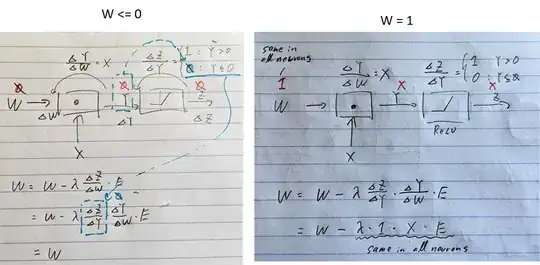 W <= 0
ΔY/ΔW = X
ΔZ/ΔY = { 1 : Y>0
0 : Y≤0
0
0
0
W
Y
Z
ΔW
ΔY
ΔZ
X
W = W - λ ΔZ/ΔW · E
0
= W - λ ΔZ/ΔY · ΔY/ΔW · E
= W
W = 1
same in
all neurons
ΔY/ΔW = X
ΔZ/ΔY = { 1 Y>0
0 : Y≤0
1
X
X
W
Y
Z
ReLU
X
W = W - λ ΔZ/ΔY · ΔY/ΔW · E
= W - λ · 1 · X · E
same in all neurons